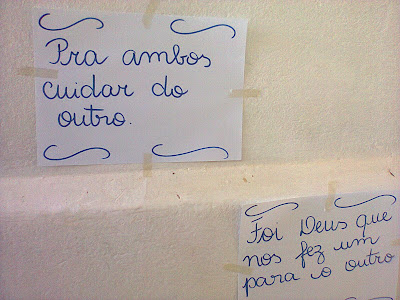 Pra ambos
cuidar do
outro.
Foi Deus que
nos fez um
para o outro